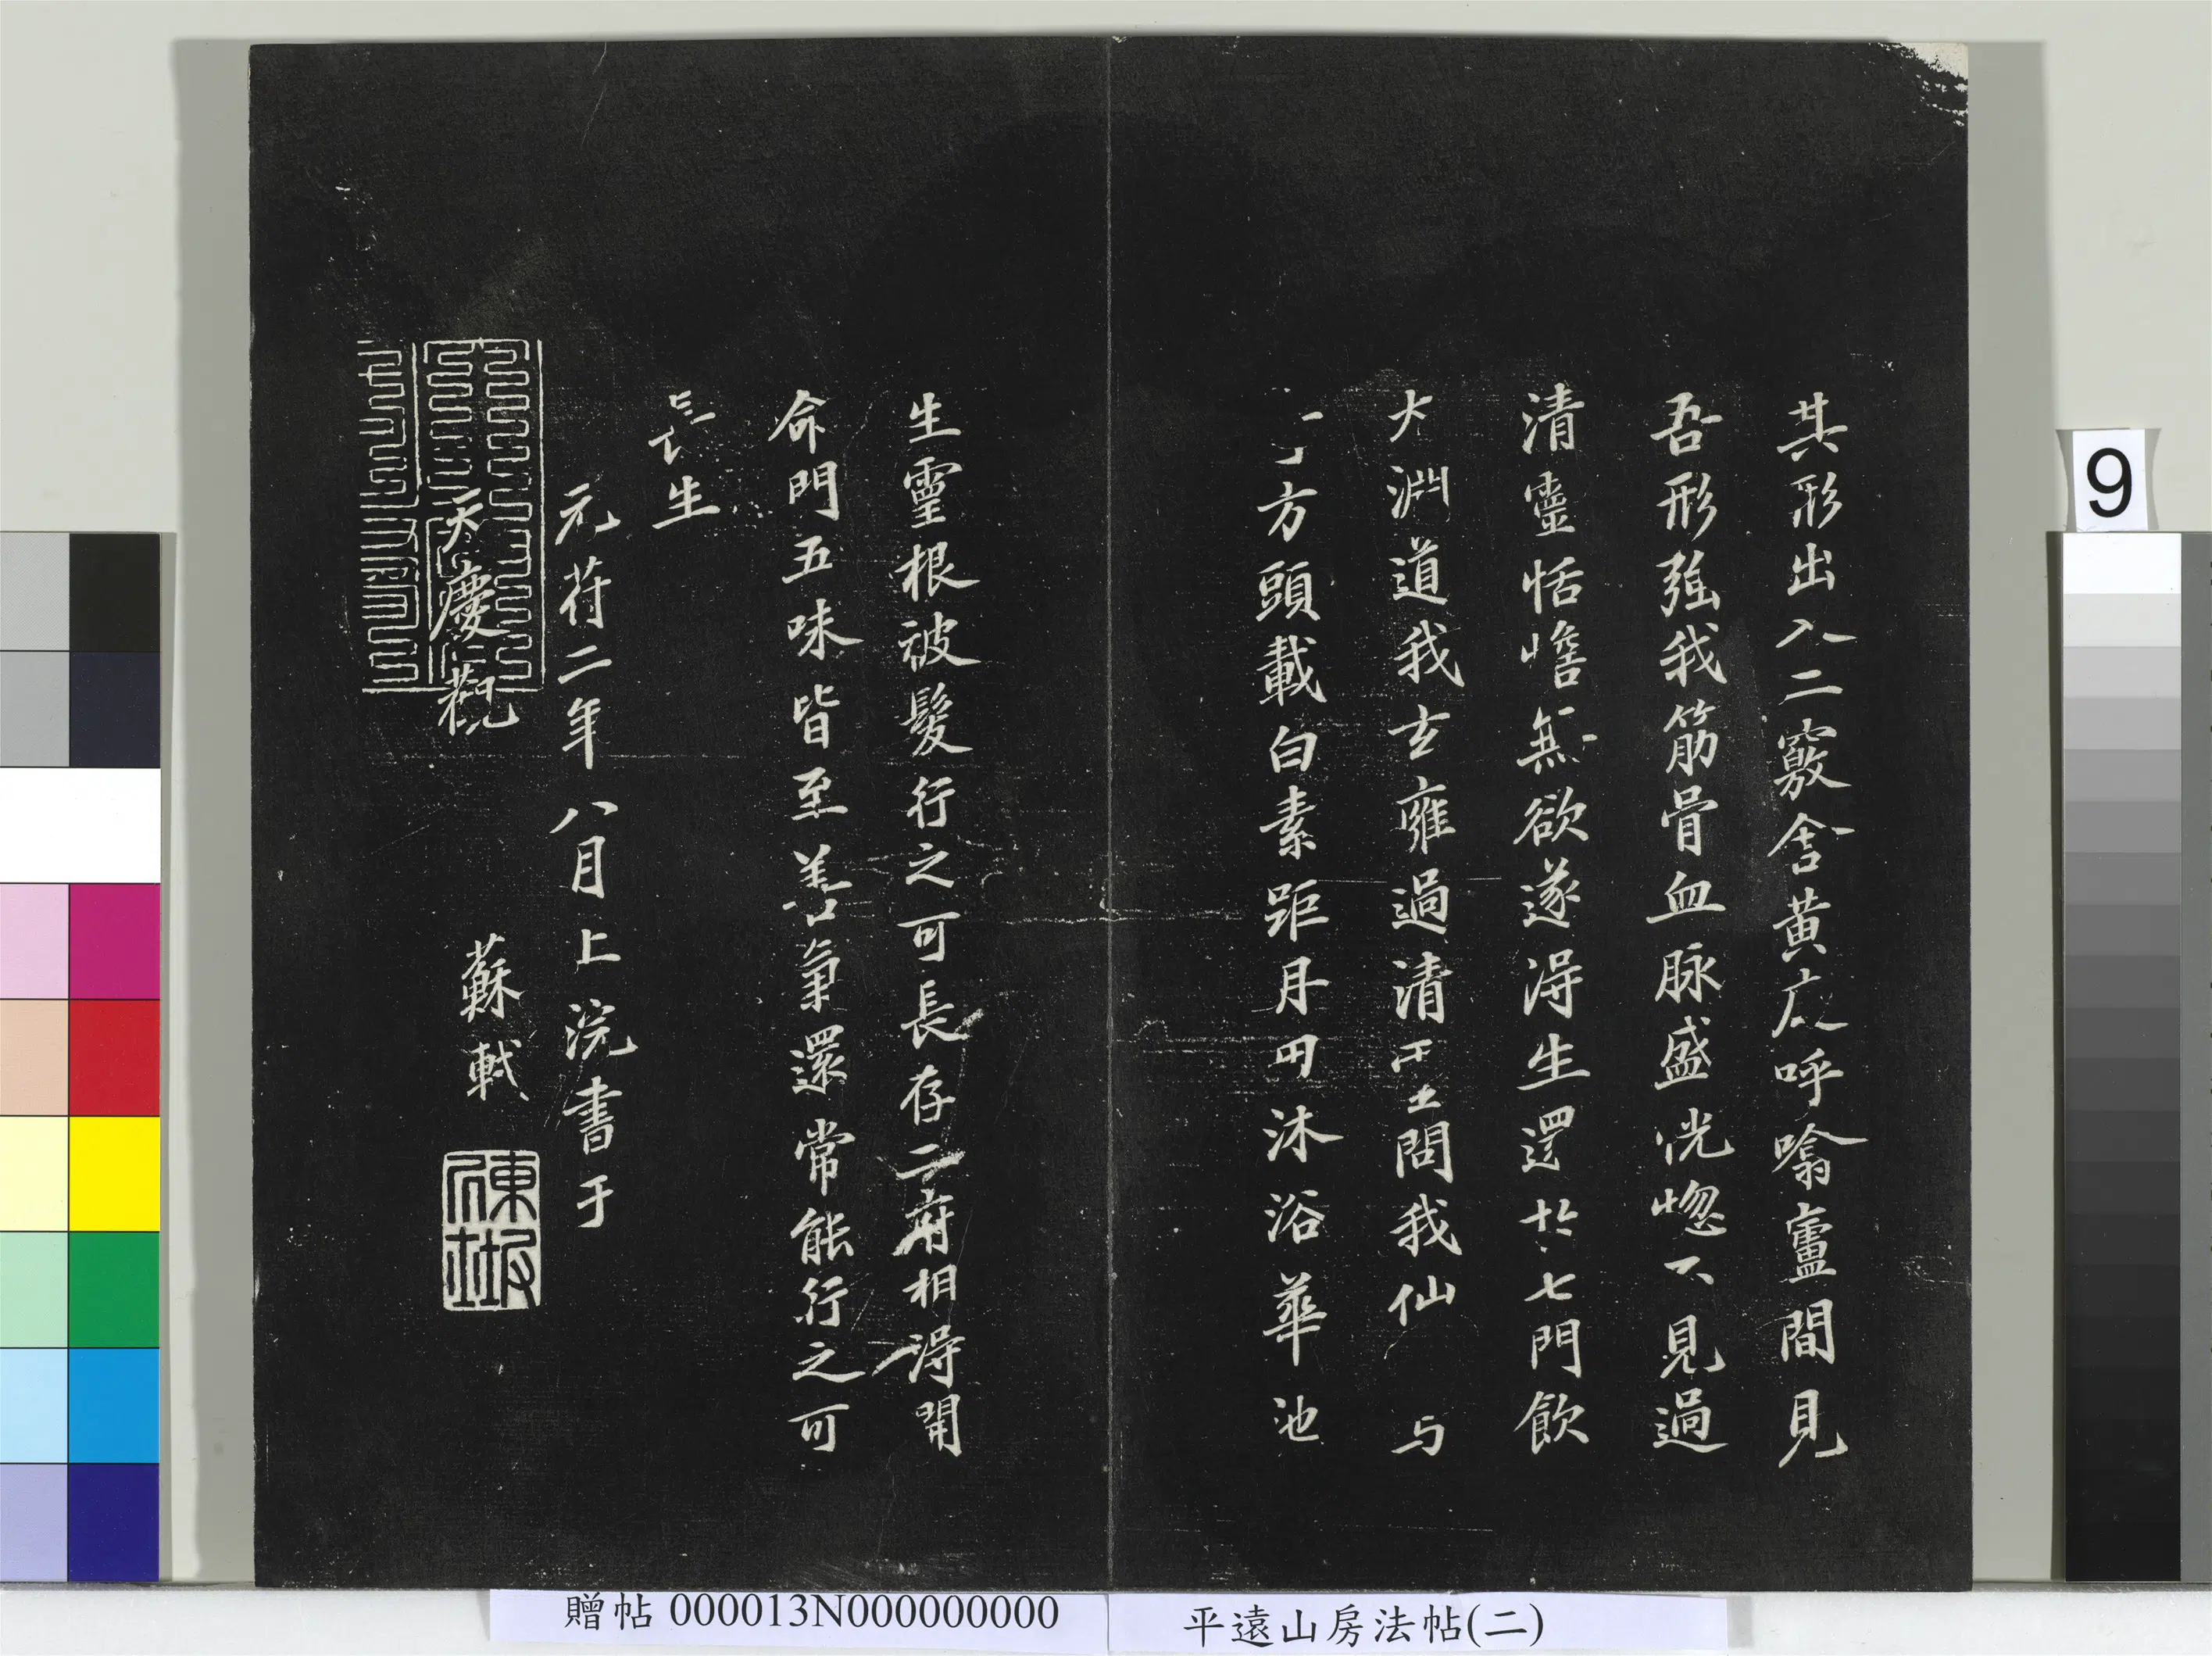 其形出入二竅舍黃庭呼噏廬間見
吾形强我筋骨血脉盛恍惚不見過
清靈恬惔無欲遂得生還於七門飲
大淵道我玄雍過清靈問我仙 与
方頭載白素距丹田沐浴華池
生靈根被髮行之可長存二府相得開
命門五味皆至善氣還常能行之可
長生
元符二年八月上浣書于
天慶觀 蘇軾
東坡
9
贈帖 000013N000000000
平遠山房法帖(二)